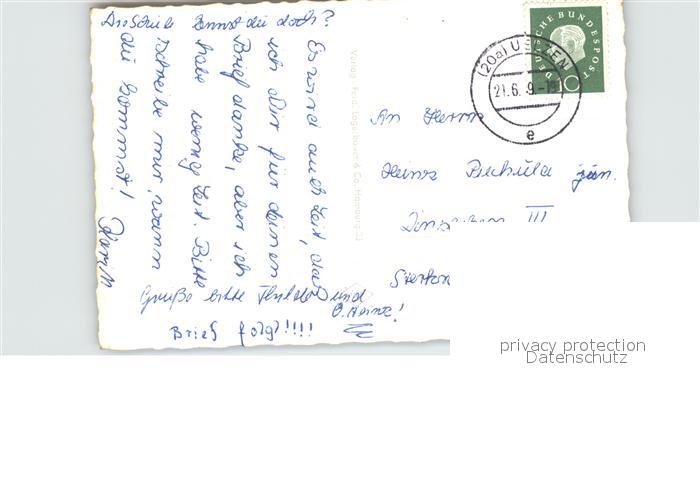 Es wird auch Zeit, daß
ich Dir für deinen
Brief danke, aber ich
habe wenig Zeit. Bitte
schreibe mir, wann
du kommst!
kennst du doch?
Grüße bitte und
Brief folgt!!!!
Verlag Ferd. Lagerbauer & Co. Hamburg
DEUTSCHE BUNDESPOST
10
(20a) UELZEN
21.6. 9.-18
e
An Herrn
Heinz jun.
III
privacy protection
Datenschutz